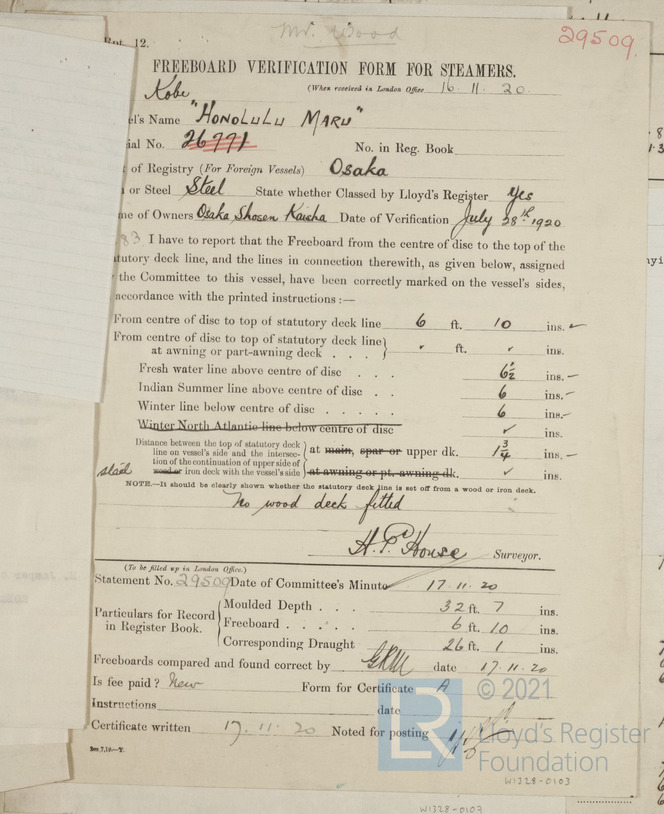 Rpt. 12.
Mr. Wood
29509.
FREEBOARD VERIFICATION FORM FOR STEAMERS.
Kobe
(When received in London Office 16.11.20.
el's Name "HONOLULU MARU"
ial No. 26771
No. in Reg. Book
of Registry (For Foreign Vessels) Osaka
or Steel Steel State whether Classed by Lloyd's Register Yes
me of Owners Osaka Shosen Kaisha Date of Verification July 28th 1920
83. I have to report that the Freeboard from the centre of disc to the top of the
atutory deck line, and the lines in connection therewith, as given below, assigned
the Committee to this vessel, have been correctly marked on the vessel's sides,
accordance with the printed instructions :—
From centre of disc to top of statutory deck line 6 ft. 10 ins. ✓
From centre of disc to top of statutory deck line
at awning or part-awning deck . . . ft. ✓ ins.
Fresh water line above centre of disc . . . 6½ ins.
Indian Summer line above centre of disc . . 6 ins.
Winter line below centre of disc . . . . . 6 ins.
Winter North Atlantic line below centre of disc ✓ ins.
Distance between the top of statutory deck
line on vessel's side and the intersec-
tion of the continuation of upper side of
steel wood or iron deck with the vessel's side
at main, spar or upper dk. 1¾ ins.
at awning or pt. awning dk. ✓ ins.
NOTE.—It should be clearly shown whether the statutory deck line is set off from a wood or iron deck.
No wood deck fitted
H. P. House Surveyor.
(To be filled up in London Office.)
Statement No. 29509 Date of Committee's Minute 17.11.20
Particulars for Record
in Register Book.
Moulded Depth . . . 32 ft. 7 ins.
Freeboard . . . . . 6 ft. 10 ins.
Corresponding Draught 26 ft. 1 ins.
Freeboards compared and found correct by GRM date 17.11.20
Is fee paid? New Form for Certificate A
Instructions date
Certificate written 17.11.20 Noted for posting
© 2021
LR
Lloyd's Register
Foundation
W1328-0103
W1328-0103